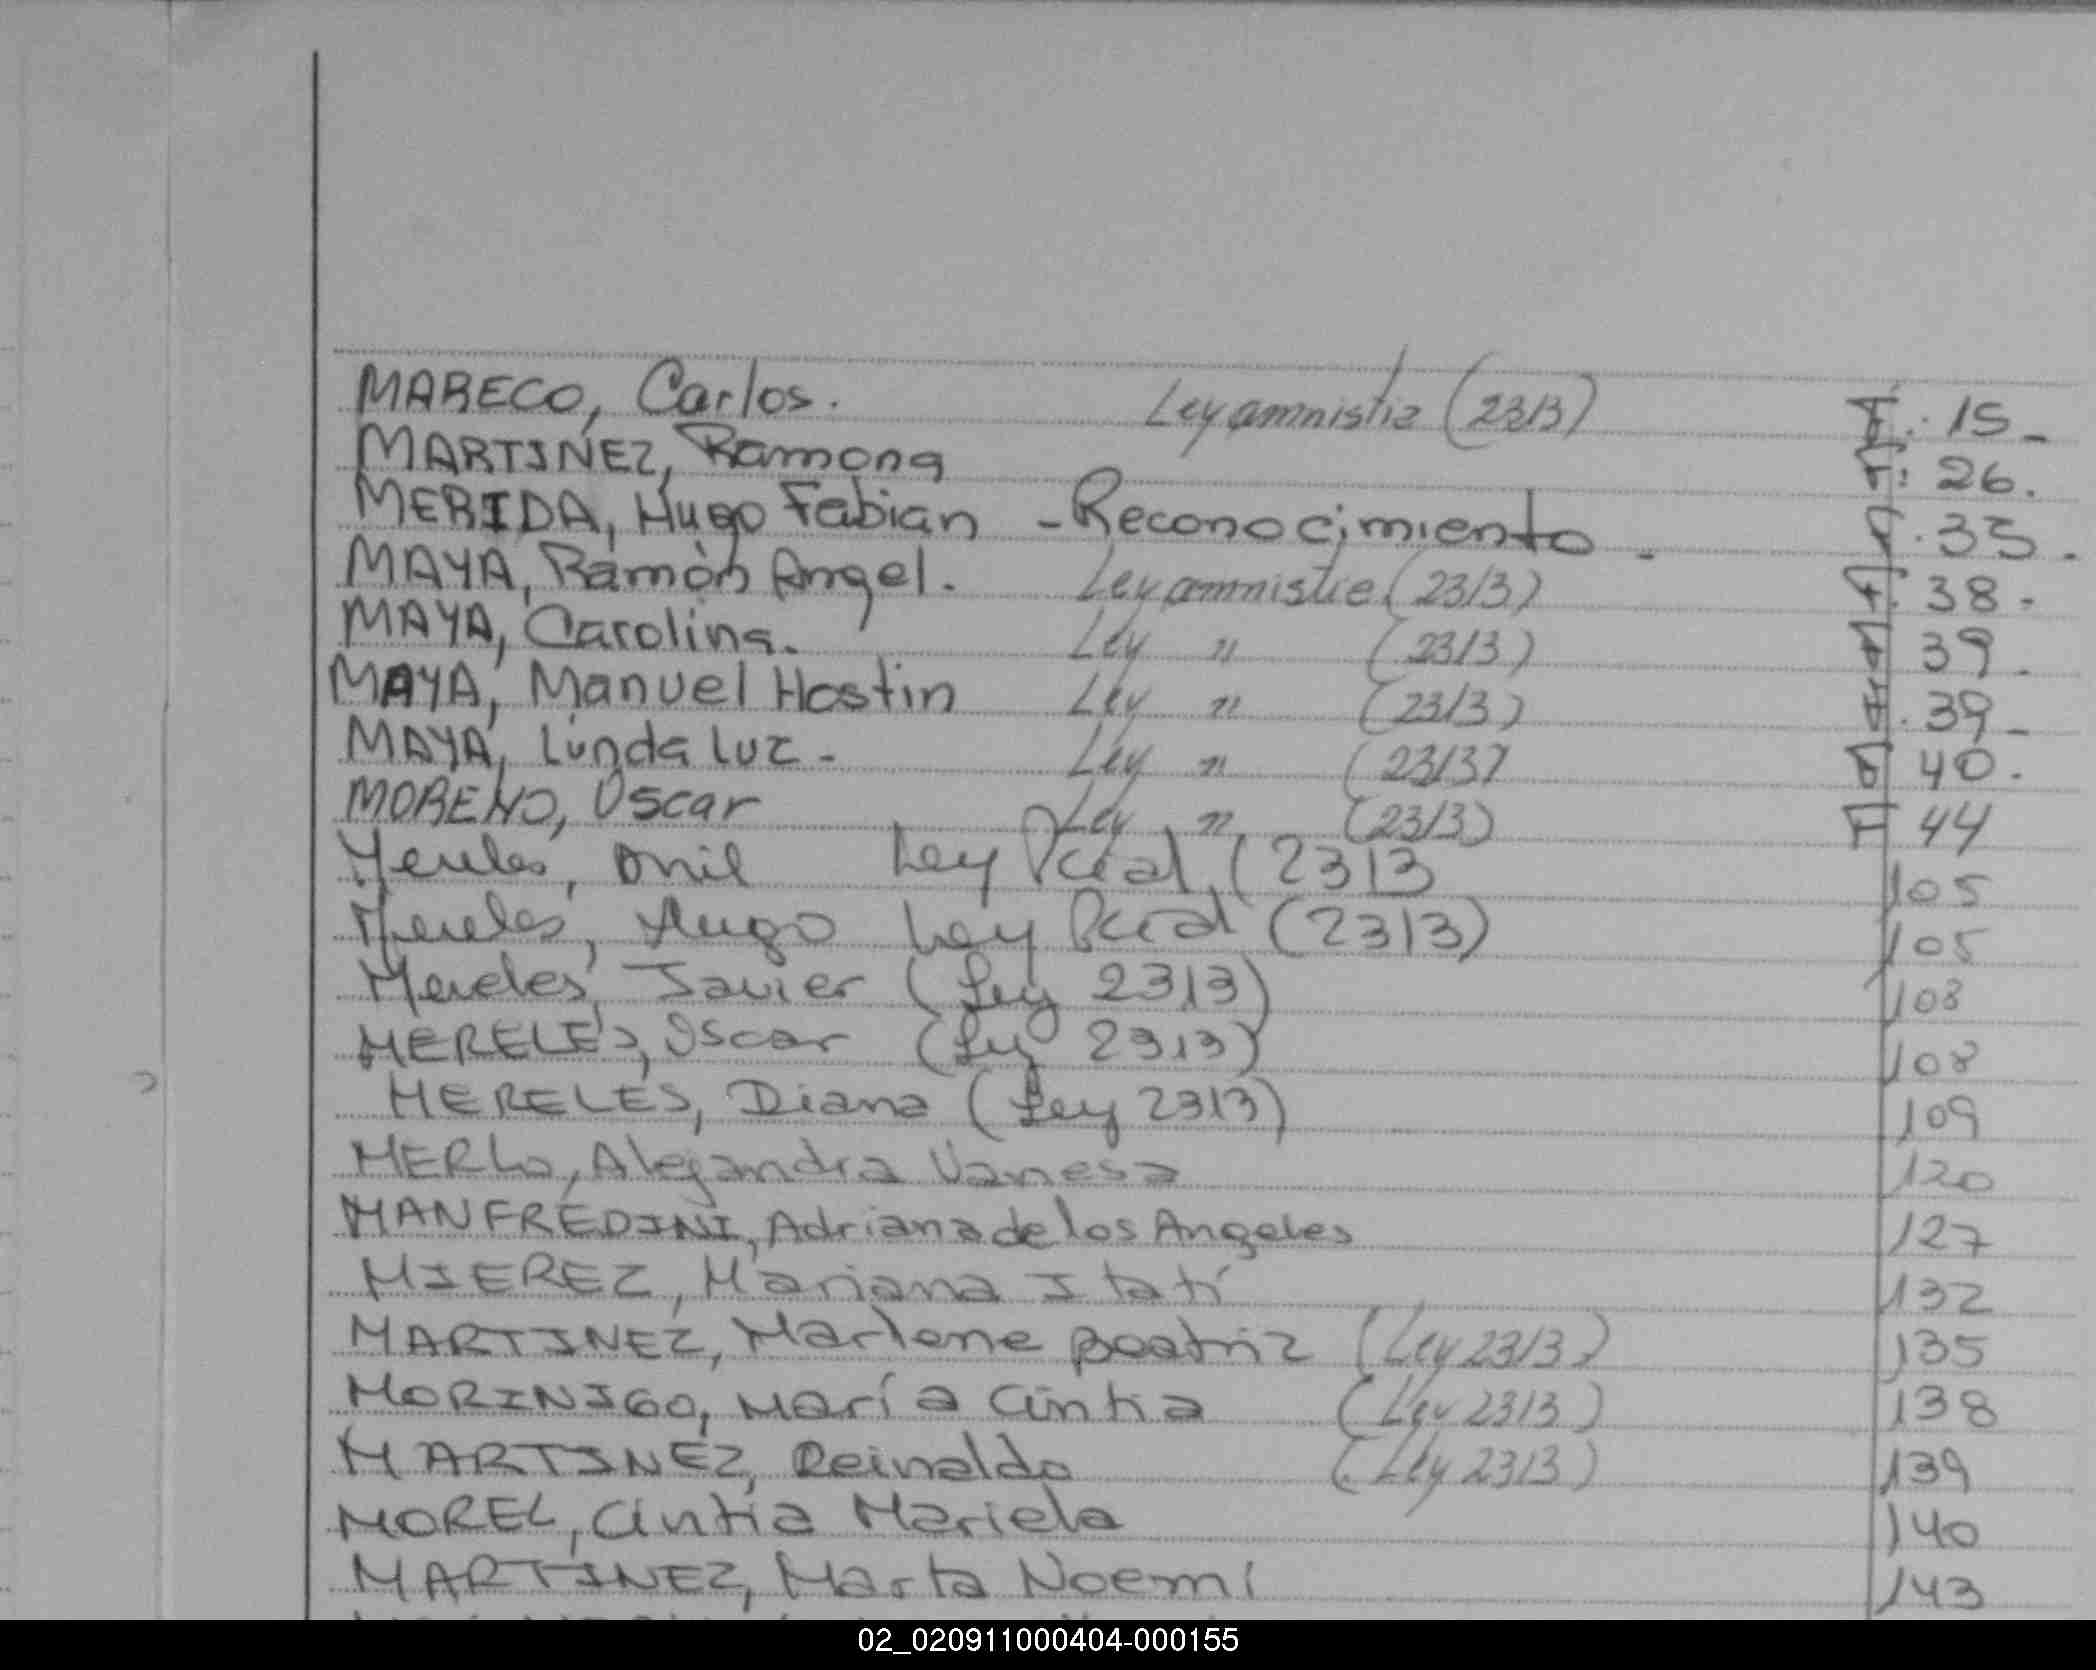 MARECO, Carlos. Ley amnistia (2313) F: 15_
MARTINEZ, Ramona F: 26.
MERIDA, Hugo Fabian - Reconocimiento. F. 35.
MAYA, Ramón Angel. Ley amnistia (2313) F. 38.
MAYA, Carolina. Ley " (2313) F 39.
MAYA, Manuel Hostin Ley " (2313) F. 39_
MAYA, Lunda Luz - Ley " (2313) F 40.
MORENO, Oscar Ley " (2313) F 44
Mereles, Ley Pcial (2313 105
Mereles, Hugo Ley Pcial (2313) 105
Mereles, Javier (Ley 2313) 108
MERELES, Oscar (Ley 2313) 108
MERELES, Diana (Ley 2313) 109
MERLO, Alejandra Vanesa 120
MANFREDINI, Adriana de los Angeles 127
MIEREZ, Mariana Itatí 132
MARTINEZ, Marlene Beatriz (Ley 2313) 135
MORINIGO, María Cintia (Ley 2313) 138
MARTINEZ, Reinaldo (Ley 2313) 139
MOREL, Cintia Mariela 140
MARTINEZ, Marta Noemí 143
02_020911000404-000155